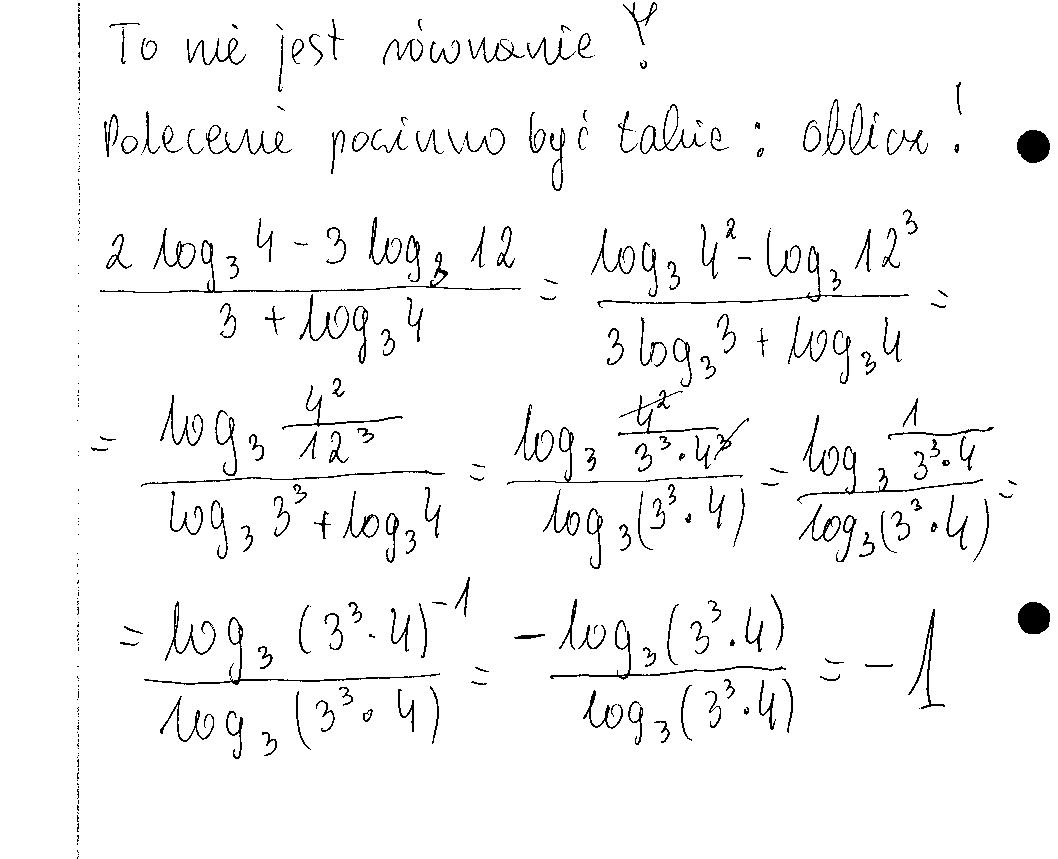 To nie jest równanie !
Polecenie powinno być takie : oblicz !
\frac{2 \log_3 4 - 3 \log_3 12}{3 + \log_3 4} = \frac{\log_3 4^2 - \log_3 12^3}{3 \log_3 3 + \log_3 4} =
= \frac{\log_3 \frac{4^2}{12^3}}{\log_3 3^3 + \log_3 4} = \frac{\log_3 \frac{4^2}{3^3 \cdot 4^3}}{\log_3 (3^3 \cdot 4)} = \frac{\log_3 \frac{1}{3^3 \cdot 4}}{\log_3 (3^3 \cdot 4)} =
= \frac{\log_3 (3^3 \cdot 4)^{-1}}{\log_3 (3^3 \cdot 4)} = \frac{-\log_3 (3^3 \cdot 4)}{\log_3 (3^3 \cdot 4)} = -1